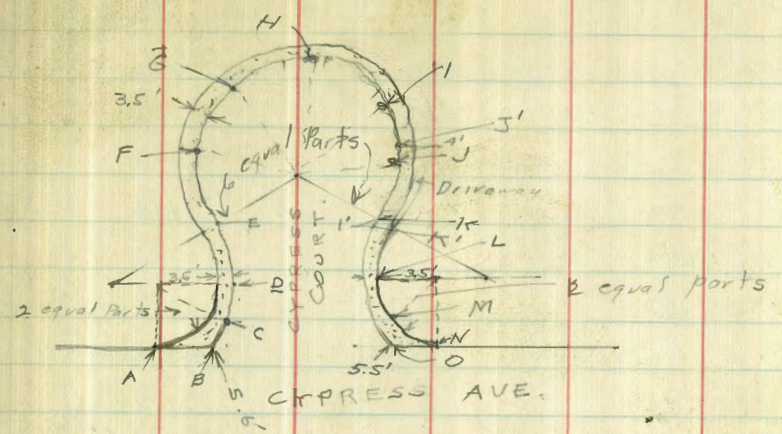 H
G
I
3.5'
J'
F
6 equal Parts
4'
J
Driveway
E
1'
K
CYPRESS
COURT.
K'
L
3.5'
D
3.5'
2 equal parts
2 equal Parts
M
C
N
A
B
5.5'
O
5.5'
CYPRESS AVE.